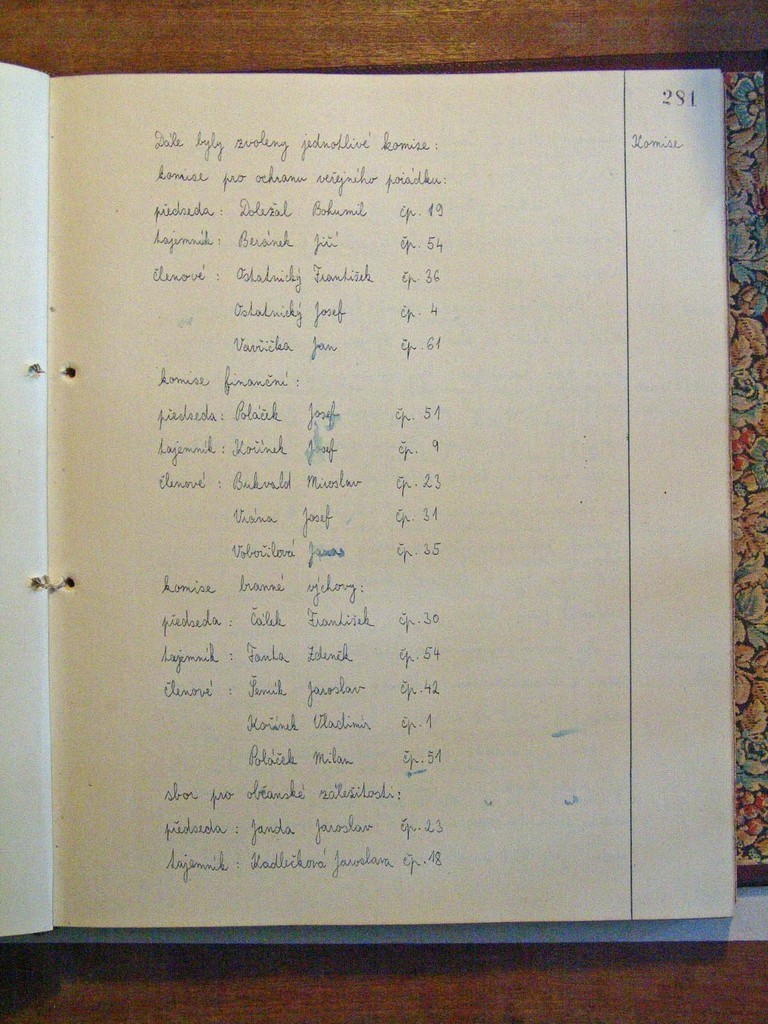 281
Dále byly zvoleny jednotlivé komise:
Komise
komise pro ochranu veřejného pořádku:
předseda: Doležal Bohumil čp. 19
tajemník: Beránek Jiří čp. 54
členové: Ostatnický František čp. 36
Ostatnický Josef čp. 4
Vavřička Jan čp. 61
komise finanční:
předseda: Poláček Josef čp. 51
tajemník: Kořínek Josef čp. 9
členové: Bukvald Miroslav čp. 23
Vrána Josef čp. 31
Vobořilová Jana čp. 35
komise branné výchovy:
předseda: Čálek František čp. 30
tajemník: Fanta Zdeněk čp. 54
členové: Šemík Jaroslav čp. 42
Kořínek Vladimír čp. 1
Poláček Milan čp. 51
sbor pro občanské záležitosti:
předseda: Janda Jaroslav čp. 23
tajemník: Kadlečková Jaroslava čp. 18